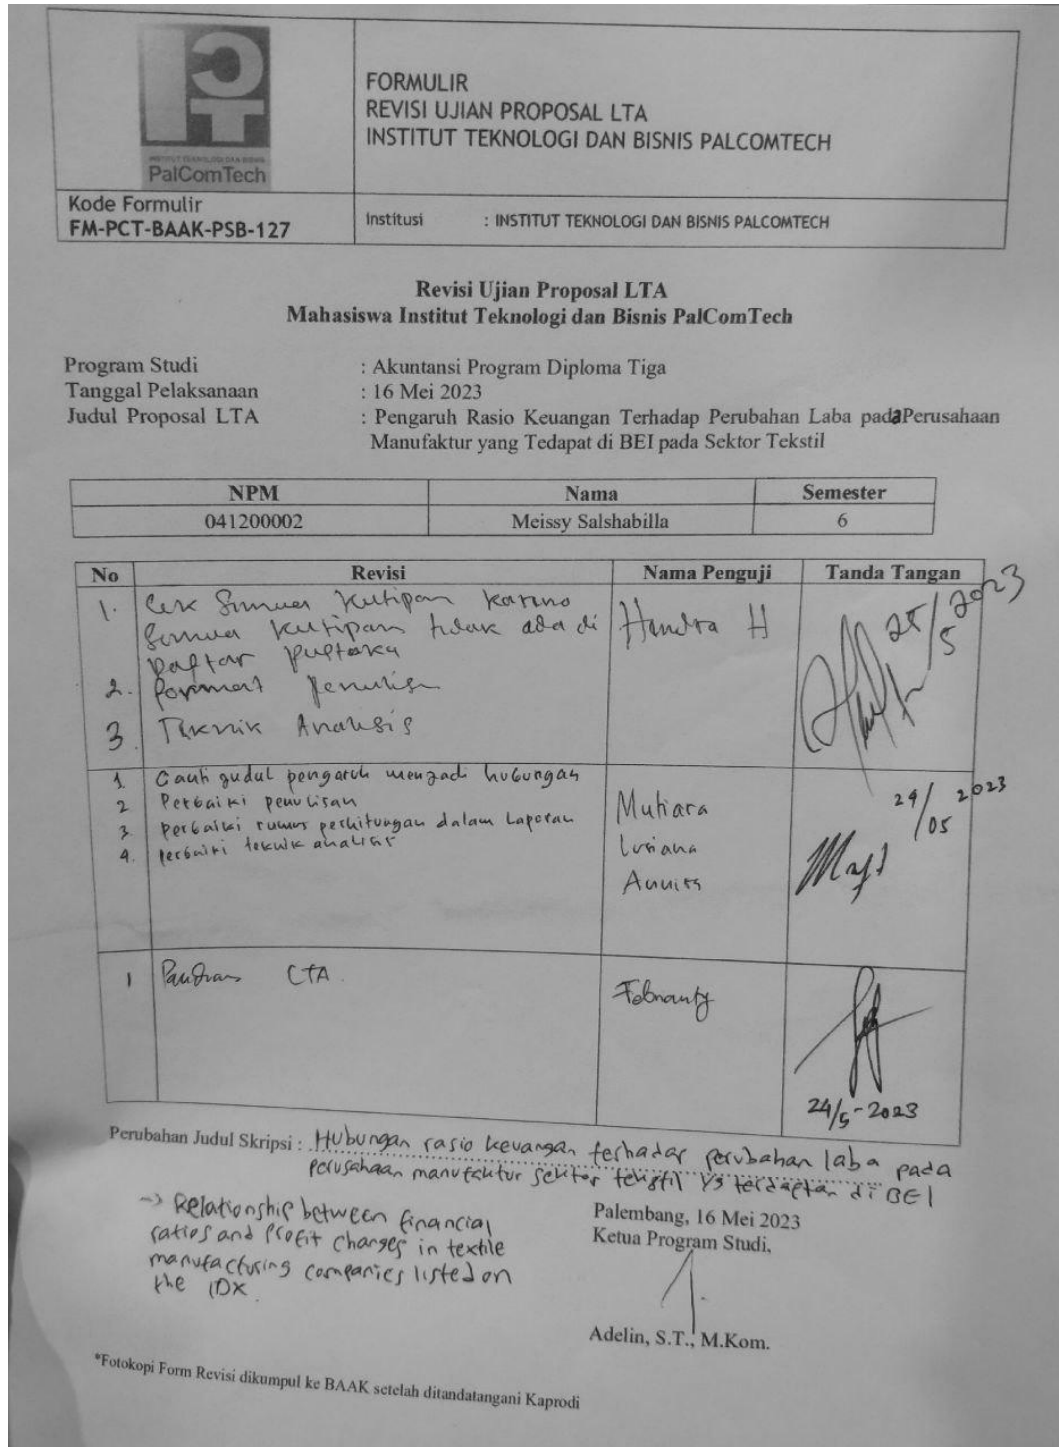 INSTITUT TEKNOLOGI DAN BISNIS
PalComTech
FORMULIR
REVISI UJIAN PROPOSAL LTA
INSTITUT TEKNOLOGI DAN BISNIS PALCOMTECH
Kode Formulir
FM-PCT-BAAK-PSB-127
Institusi : INSTITUT TEKNOLOGI DAN BISNIS PALCOMTECH
Revisi Ujian Proposal LTA
Mahasiswa Institut Teknologi dan Bisnis PalComTech
Program Studi : Akuntansi Program Diploma Tiga
Tanggal Pelaksanaan : 16 Mei 2023
Judul Proposal LTA : Pengaruh Rasio Keuangan Terhadap Perubahan Laba pada Perusahaan
Manufaktur yang Tedapat di BEI pada Sektor Tekstil
NPM Nama Semester
041200002 Meissy Salshabilla 6
No Revisi Nama Penguji Tanda Tangan
1. Cek Semua Kutipan karena Hendra H 25/5 2023
Semua kutipan tidak ada di
Daftar Pustaka
2. Format Penulisan
3. Teknik Analisis
1 Ganti judul pengaruh menjadi hubungan
2 Perbaiki penulisan Mutiara 24/05 2023
3. Perbaiki rumus perhitungan dalam Laporan
4. Perbaiki teknik analisis Lusiana
Annisa
1 Panduan LTA. Febrianty
24/5-2023
Perubahan Judul Skripsi : Hubungan rasio keuangan terhadap perubahan laba pada
perusahaan manufaktur sektor tekstil yg terdaftar di BEI
-> Relationship between financial
ratios and profit changes in textile
manufacturing companies listed on
the IDX
Palembang, 16 Mei 2023
Ketua Program Studi,
Adelin, S.T., M.Kom.
*Fotokopi Form Revisi dikumpul ke BAAK setelah ditandatangani Kaprodi